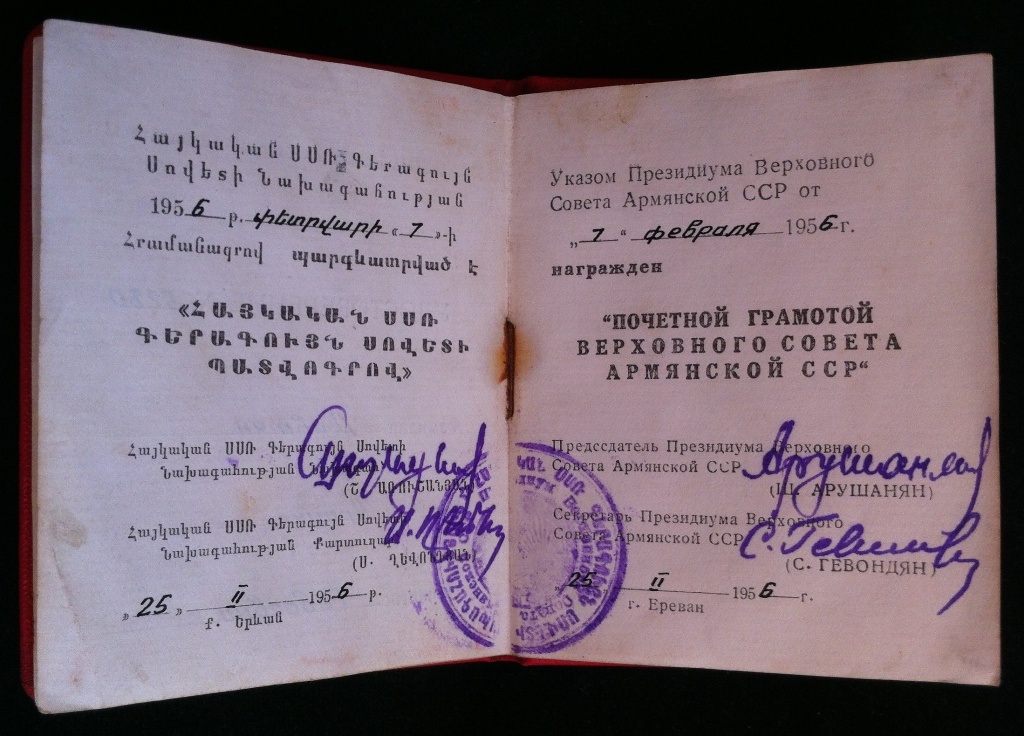 Հայկական ՍՍՌ Գերագույն
Սովետի Նախագահության
1956 թ. փետրվարի «7»-ի
Հրամանագրով պարգևատրված է
«ՀԱՅԿԱԿԱՆ ՍՍՌ
ԳԵՐԱԳՈՒՅՆ ՍՈՎԵՏԻ
ՊԱՏՎՈԳՐՈՎ»
Հայկական ՍՍՌ Գերագույն Սովետի
Նախագահության Նախագահ
(Շ. ԱՌՈՒՇԱՆՅԱՆ)
Հայկական ՍՍՌ Գերագույն Սովետի
Նախագահության Քարտուղար
(Ս. ՂԵՎՈՆԴՅԱՆ)
„25„ II 1956 թ.
ք. Երևան
Указом Президиума Верховного
Совета Армянской ССР от
„7“ февраля 1956 г.
награжден
“ПОЧЕТНОЙ ГРАМОТОЙ
ВЕРХОВНОГО СОВЕТА
АРМЯНСКОЙ ССР“
Предссдатель Президиума Верховного
Совета Армянской ССР
(Ш. АРУШАНЯН)
Секретарь Президиума Верховного
Совета Армянской ССР
(С. ГЕВОНДЯН)
„25„ II 1956 г.
г. Ереван